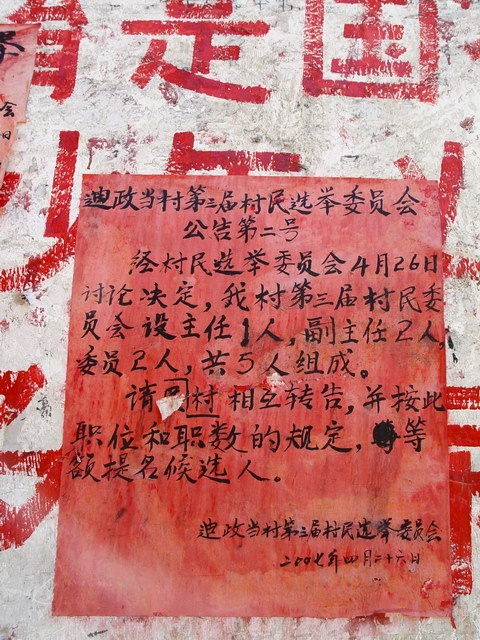 是国
迪政当村第三届村民选举委员会
公告第二号
经村民选举委员会4月26日
讨论决定，我村第三届村民委
员会设主任1人，副主任2人，
委员2人，共5人组成。
请 村相互转告，并按此
职位和职数的规定， 等
额提名候选人。
迪政当村第三届村民选举委员会
二00七年四月二十六日